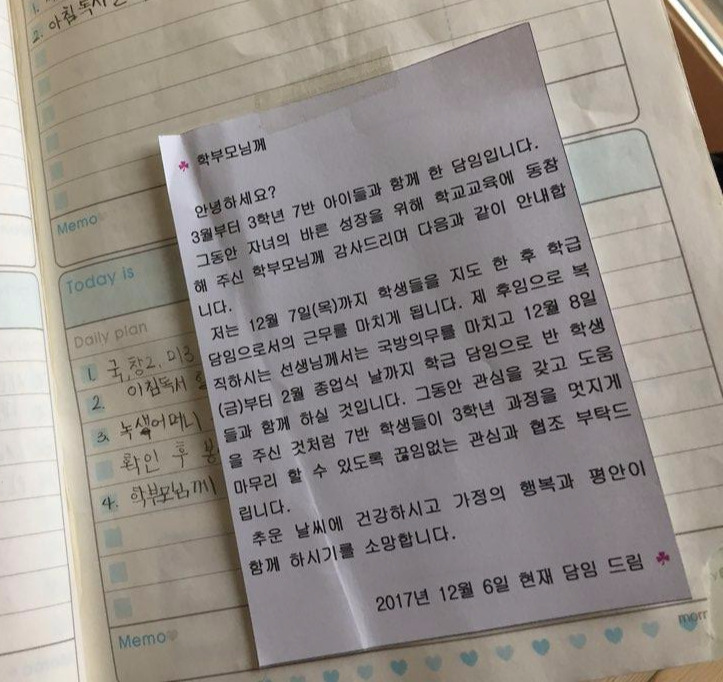 1.
2. 아침독서
Memo
Today is
Daily plan
1. 국, 창2, 미3
2. 아침독서
3. 녹색어머니
확인 후
4. 학부모님께
Memo
학부모님께
안녕하세요?
3월부터 3학년 7반 아이들과 함께 한 담임입니다.
그동안 자녀의 바른 성장을 위해 학교교육에 동참
해 주신 학부모님께 감사드리며 다음과 같이 안내합
니다.
저는 12월 7일(목)까지 학생들을 지도 한 후 학급
담임으로서의 근무를 마치게 됩니다. 제 후임으로 복
직하시는 선생님께서는 국방의무를 마치고 12월 8일
(금)부터 2월 종업식 날까지 학급 담임으로 반 학생
들과 함께 하실 것입니다. 그동안 관심을 갖고 도움
을 주신 것처럼 7반 학생들이 3학년 과정을 멋지게
마무리 할 수 있도록 끊임없는 관심과 협조 부탁드
립니다.
추운 날씨에 건강하시고 가정의 행복과 평안이
함께 하시기를 소망합니다.
2017년 12월 6일 현재 담임 드림